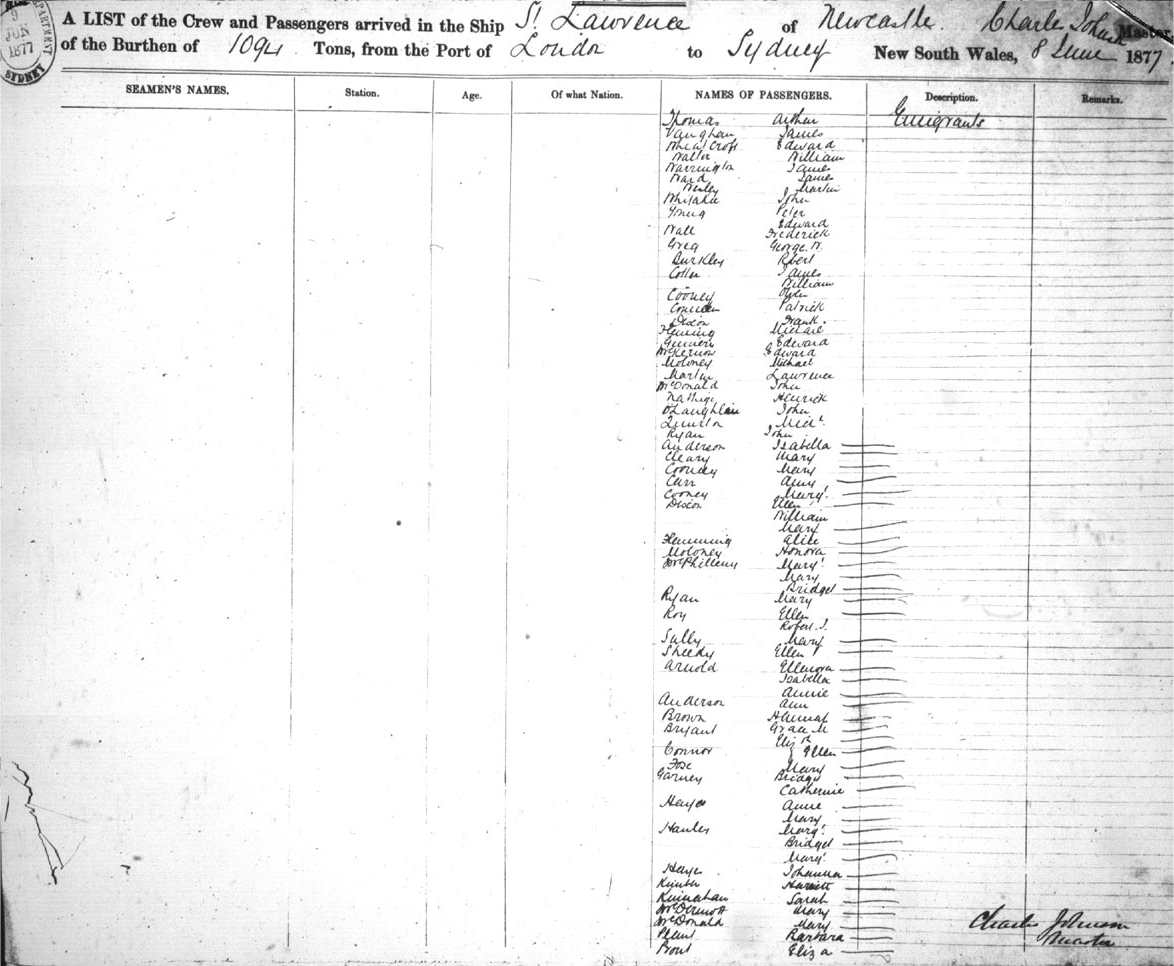 9 JUN 1877 SYDNEY
A LIST of the Crew and Passengers arrived in the Ship St. Lawrence of Newcastle. Charles Johnson Master
of the Burthen of 1094 Tons, from the Port of London to Sydney New South Wales, 8 June 1877.
SEAMEN'S NAMES. Station. Age. Of what Nation. NAMES OF PASSENGERS. Description. Remarks.
Thomas Arthur Emigrants
Vaughan James
Wheatcroft Edward
Walter William
Warrington James
Ward James
Wesley Martin
John
Young Peter
Edward
Wall Frederick
Greg George W.
Burkley Robert
Cotter James
William
Cooney
Patrick
Dixon Frank.
Fleming Michael
Edward
McKernon Edward
Moloney Michael
Martin Lawrence
McDonald John
Henrick
O'Laughlin John
Michl.
Ryan John
Anderson Isabella
Cleary Mary
Cooney Mary
Carr Amy
Cooney Margt.
Dixon Ellen
William
Mary
Flemming Alice
Moloney Honora
McPhillemy Margt.
Mary
Bridget
Ryan Mary
Roy Ellen
Robert J.
Sally Mary
Sheedy Ellen
Arnold Ellenora
Isabella
Annie
Anderson Ann
Brown Hannah
Bryant Grace M
Elizth
Connor Ellen
Fox Mary
Garney Bridget
Catherine
Hayes Anne
Mary
Margt.
Bridget
Margt.
Hayes Johanna
Kimber Harriett
Kinnahan Sarah
McDermott Mary
McDonald Mary
Plant Barbara
Prout Eliza
Charles Johnson
Master